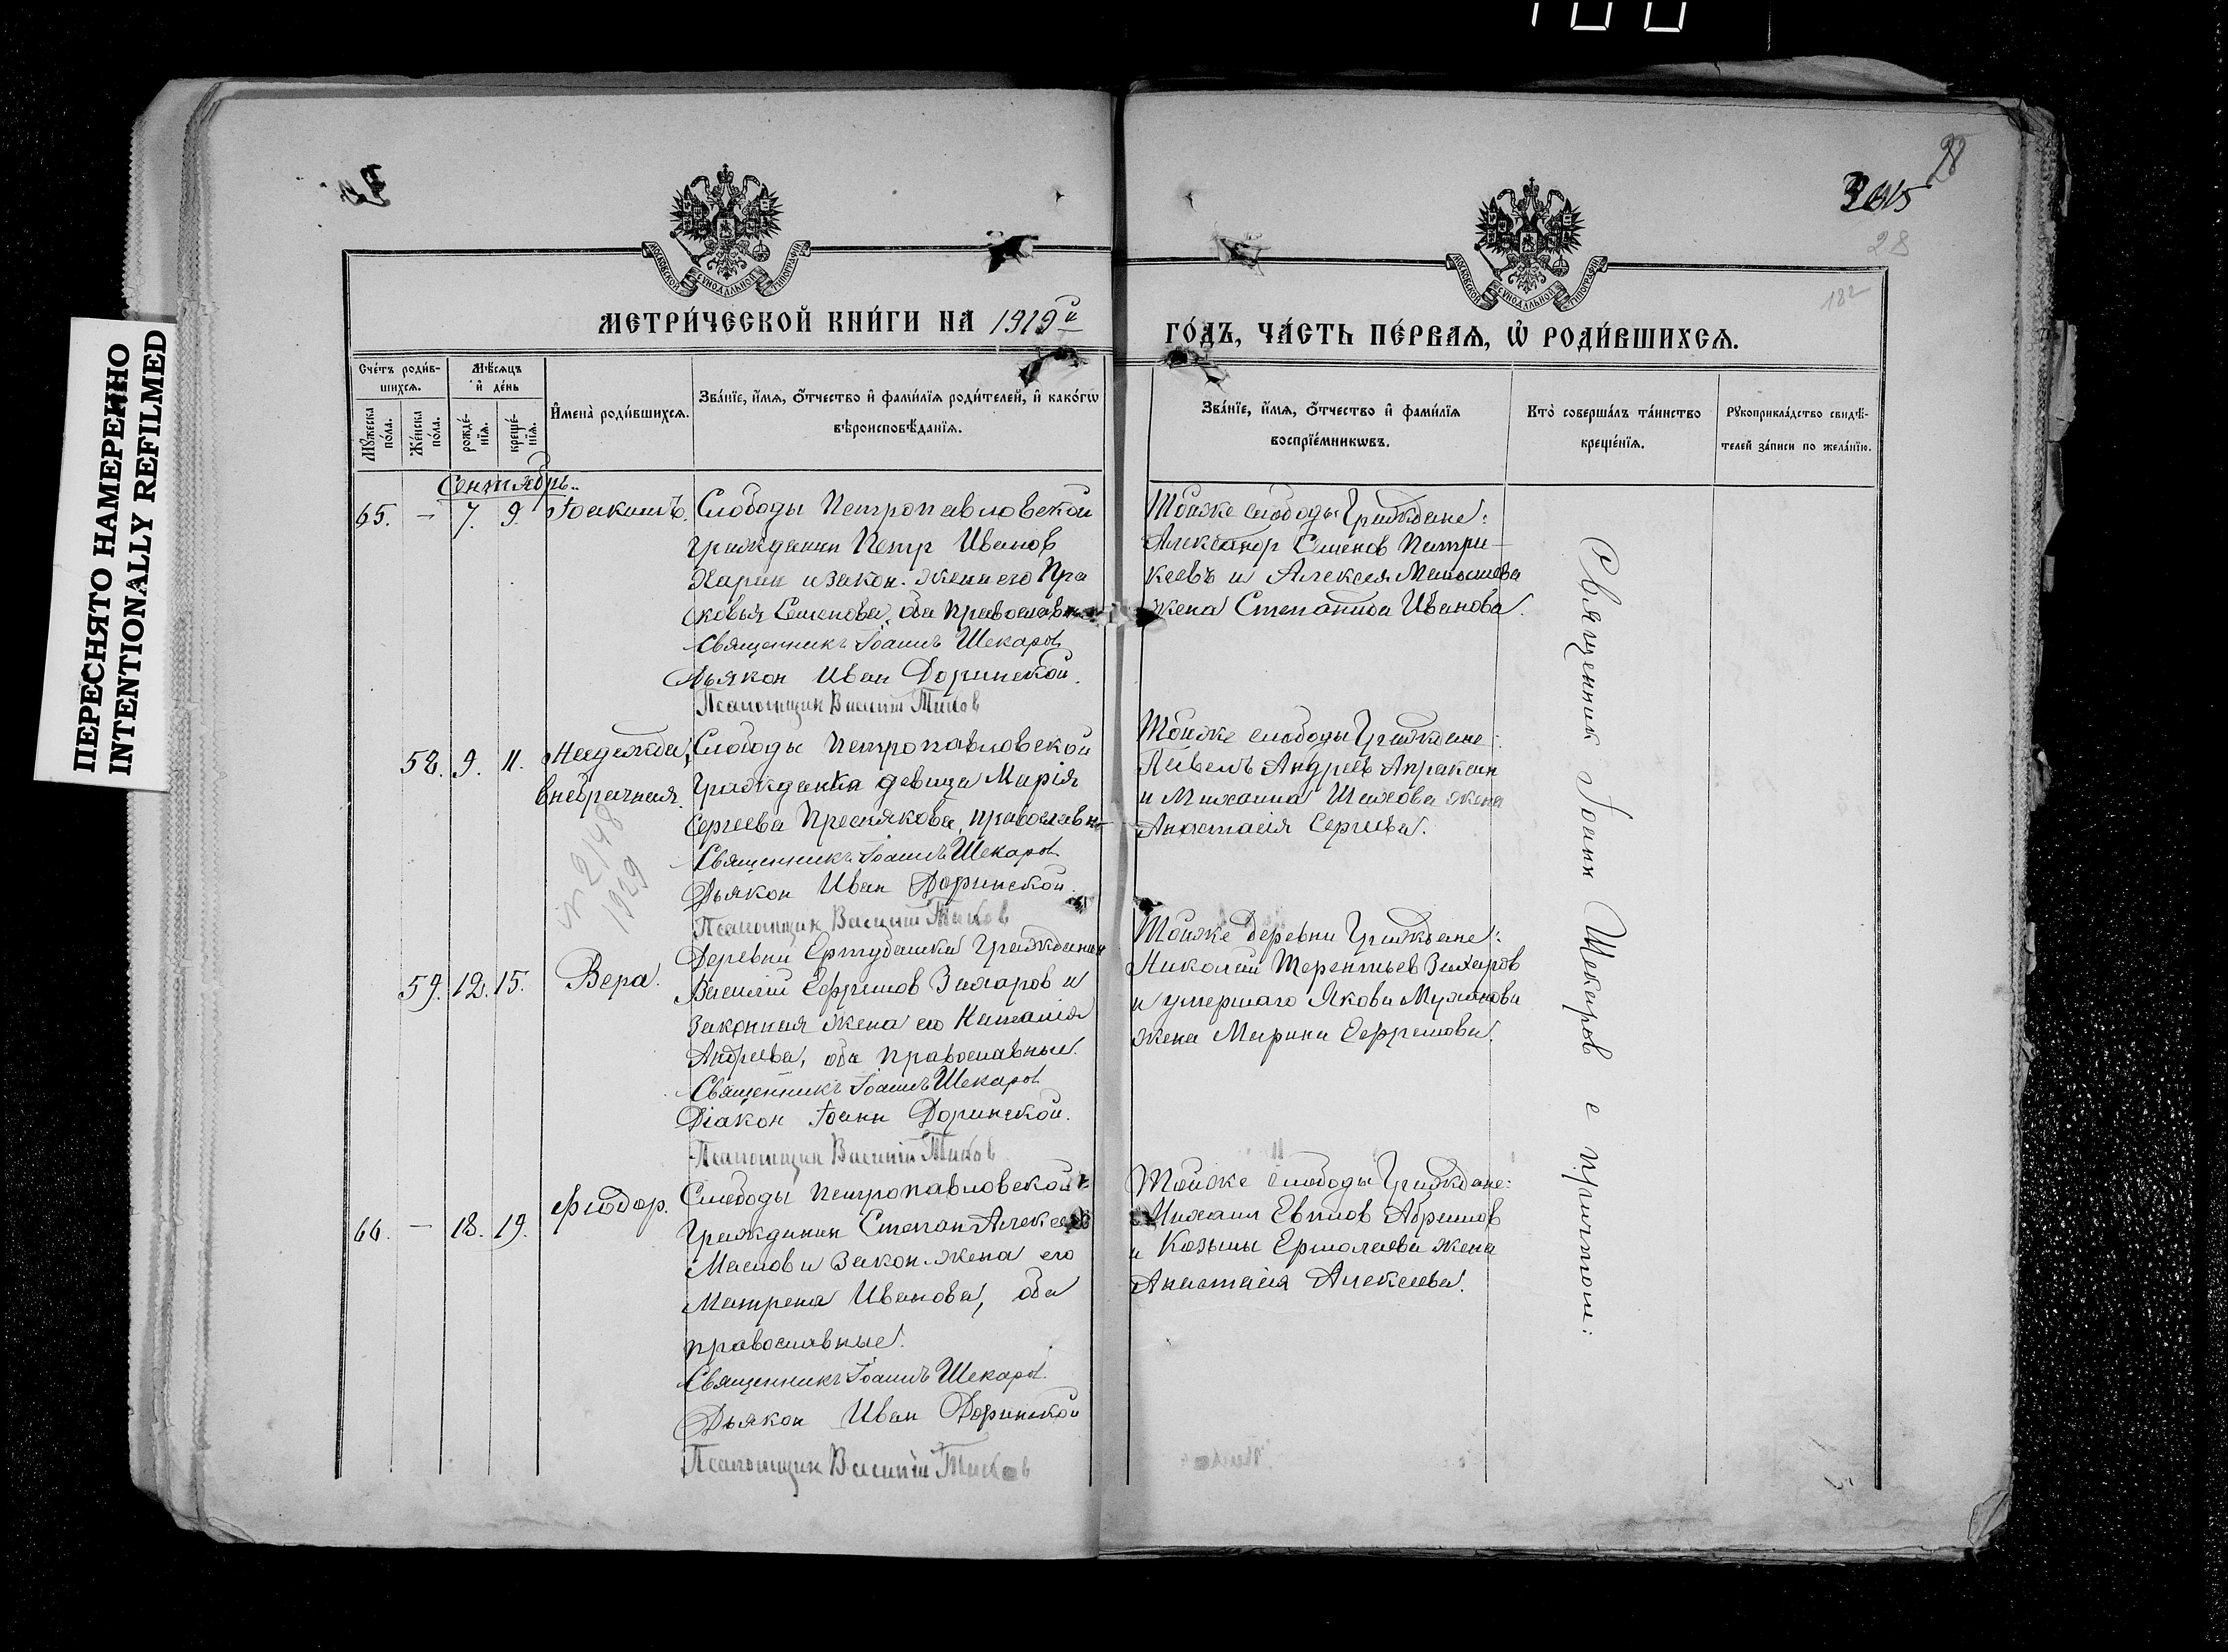 ПЕРЕСНЯТО НАМЕРЕННО
INTENTIONALLY REFILMED
28
28
182
МОСКОВСКОЙ СѴНОДАЛЬНОЙ ТИПОГРАФІИ
МОСКОВСКОЙ СѴНОДАЛЬНОЙ ТИПОГРАФІИ
МЕТРИ́ЧЕСКОЙ КНИ́ГИ НА 1919й
ГО́ДЪ, ЧА́СТЬ ПЕ́РВАЯ, Ѡ РОДИ́ВШИХСЯ.
Сче́тъ роди́в-
шихся.
Мѣ́сяцъ
и де́нь
Му́жеска
по́ла.
Же́нска
по́ла.
рожде́-
нія.
креще́-
нія.
Имена̀ роди́вшихся.
Зва́нїе, и́мя, о́тчество и фами́лїя роди́телей, и како́гѡ
вѣроисповѣ́данїя.
Зва́нїе, и́мя, о́тчество и фами́лїя
воспрїе́мникѡвъ.
Кто̀ соверша́лъ та́инство
креще́нїя.
Рукоприкла́дство свидѣ́-
телей за́писи по жела́нїю.
Сентябрь.
65. — 7. 9. Іоакимъ.
Слободы Петропавловской
гражданин Петр Иванов
Харин и закон. жена его Пра
сковья Семенова, оба православн
Священникъ Іоаннъ Шекаров
Дьякон Иван Доринской.
Псаломщик Василій Титов
Тойже слободы Граждане:
Александр Семенов Патри-
кеевъ и Алексея
жена Степанида Иванова.
58. 9. 11. Надежда,
внебрачная.
№ 2148
1929
Слободы Петропавловской
гражданка девица Марія
Сергеева Преснякова, православн
Священникъ Іоаннъ Шекаров
Дьякон Иван Доринской.
Псаломщик Василій Титов
Тойже слободы Граждане:
Павелъ Андреев Апраксин
и Михаила жена
Анастасія Сергеева.
59. 12. 15. Вера.
Деревни Гражданин
Василій Ефремов Захаров и
законная жена его Наталія
Андреева, оба православные.
Священникъ Іоаннъ Шекаров
Діакон Іоанн Доринской.
Псаломщик Василій Титов
Тойже деревни Граждане:
Николай Терентьев Захаров
и умершаго Якова
жена Марина Ефремова.
66. — 18. 19. Фіодор.
Слободы Петропавловской
Гражданин Степан Алексеев
Маслов и закон. жена его
Матрена Иванова, оба
православные.
Священникъ Іоаннъ Шекаров.
Дьякон Иван Доринской
Псаломщик Василій Титов
Тойже слободы Граждане:
Михаил Абрамов
и Козьмы Ермолаева жена
Анастасія Алексеева.
Священник Іоанн Шекаров с причтом: